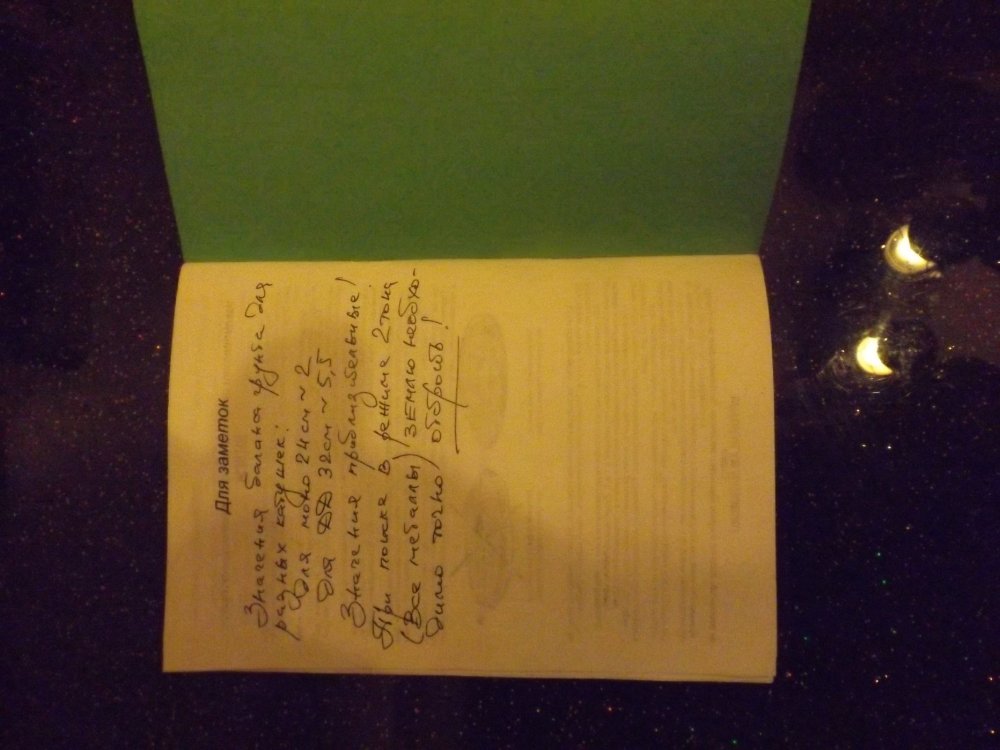 Для заметок
Значения баланса грунта для
разных катушек:
Для моно 24см ~ 2
Для DD 32см ~ 5,5
Значения приблизительные!
При поиске в режиме 2 тона
(Все металлы) землю необхо-
димо точно отбросить!